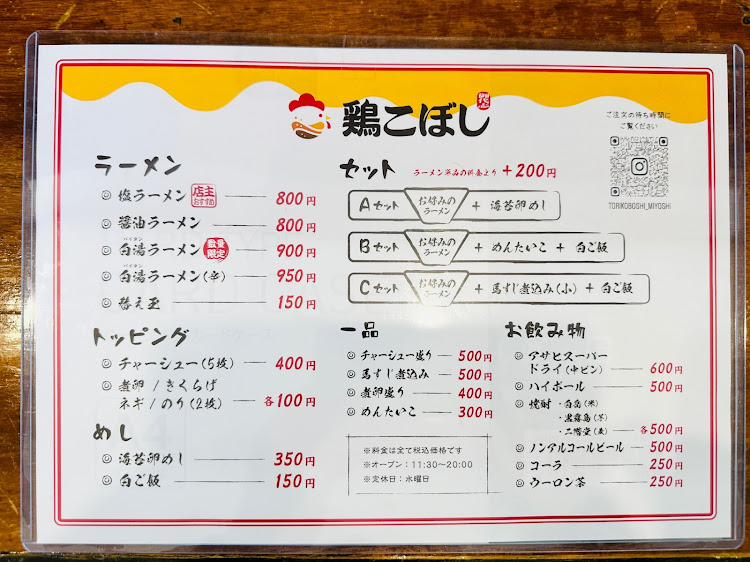 鶏こぼし
ご注文の待ち時間に
ご覧ください
TORIKOBOSHI_MIYOSHI
ラーメン
塩ラーメン 店主おすすめ 800円
醤油ラーメン 800円
白湯ラーメン 数量限定 900円
パイタン
白湯ラーメン(辛) 950円
パイタン
替え玉 150円
セット ラーメン単品の料金より +200円
Aセット お好みのラーメン + 海苔卵めし
Bセット お好みのラーメン + めんたいこ + 白ご飯
Cセット お好みのラーメン + 馬すじ煮込み(小) + 白ご飯
トッピング
チャーシュー(5枚) 400円
煮卵/きくらげ
ネギ/のり(2枚) 各100円
めし
海苔卵めし 350円
白ご飯 150円
一品
チャーシュー盛り 500円
馬すじ煮込み 500円
煮卵盛り 400円
めんたいこ 300円
※料金は全て税込価格です
※オープン:11:30~20:00
※定休日:水曜日
お飲み物
アサヒスーパー
ドライ(中ビン) 600円
ハイボール 500円
焼酎 ・白岳(米)
・黒霧島(芋)
・二階堂(麦) 各500円
ノンアルコールビール 500円
コーラ 250円
ウーロン茶 250円